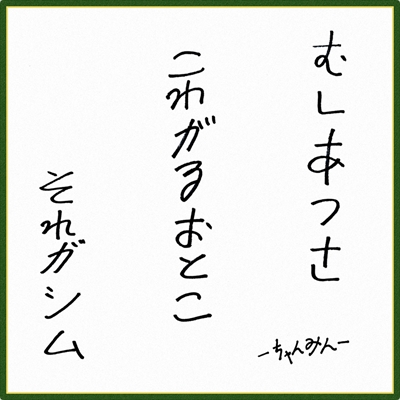 むしあつさ
こわがるおとこ
それガシム
ーちゃんみんー